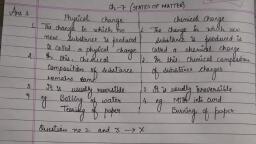 Ch-7 (STATES OF MATTER)
Ans 1 Physical change chemical change
1. The change in which no 1. The change in which new
new substance is produced substance is produced is
is called a physical change called a chemical change
2. In this chemical 2. In this chemical composition
composition of substance of substance changes
remains same
3. It is usually reversible 3. It is usually irreversible
4 eg Boiling of water 4. eg. Milk into curd
Tearing of paper Burning of paper
Question no 2 and 3 → X